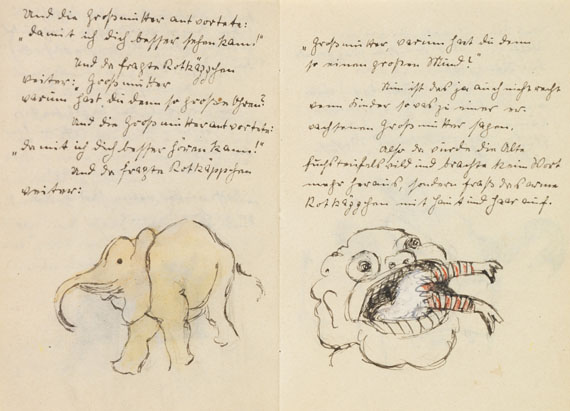 Und die Großmutter antwortete:
„damit ich dich besser sehen kann!"
Und da fragte Rotkäppchen
weiter: „Großmutter
warum hast du denn so große Ohren?
Und die Großmutter antwortete:
„damit ich dich besser hören kann!"
Und da fragte Rotkäppchen
weiter:
„Großmutter, warum hast du denn
so einen großen Mund?"
Nun ist das ja auch nicht recht
wenn Kinder sowas zu einer er-
wachsenen Großmutter sagen.
Also da wurde die Alte
fuchsteufelswild und brachte kein Wort
mehr heraus, sondern fraß das arme
Rotkäppchen mit Haut und Haar auf.